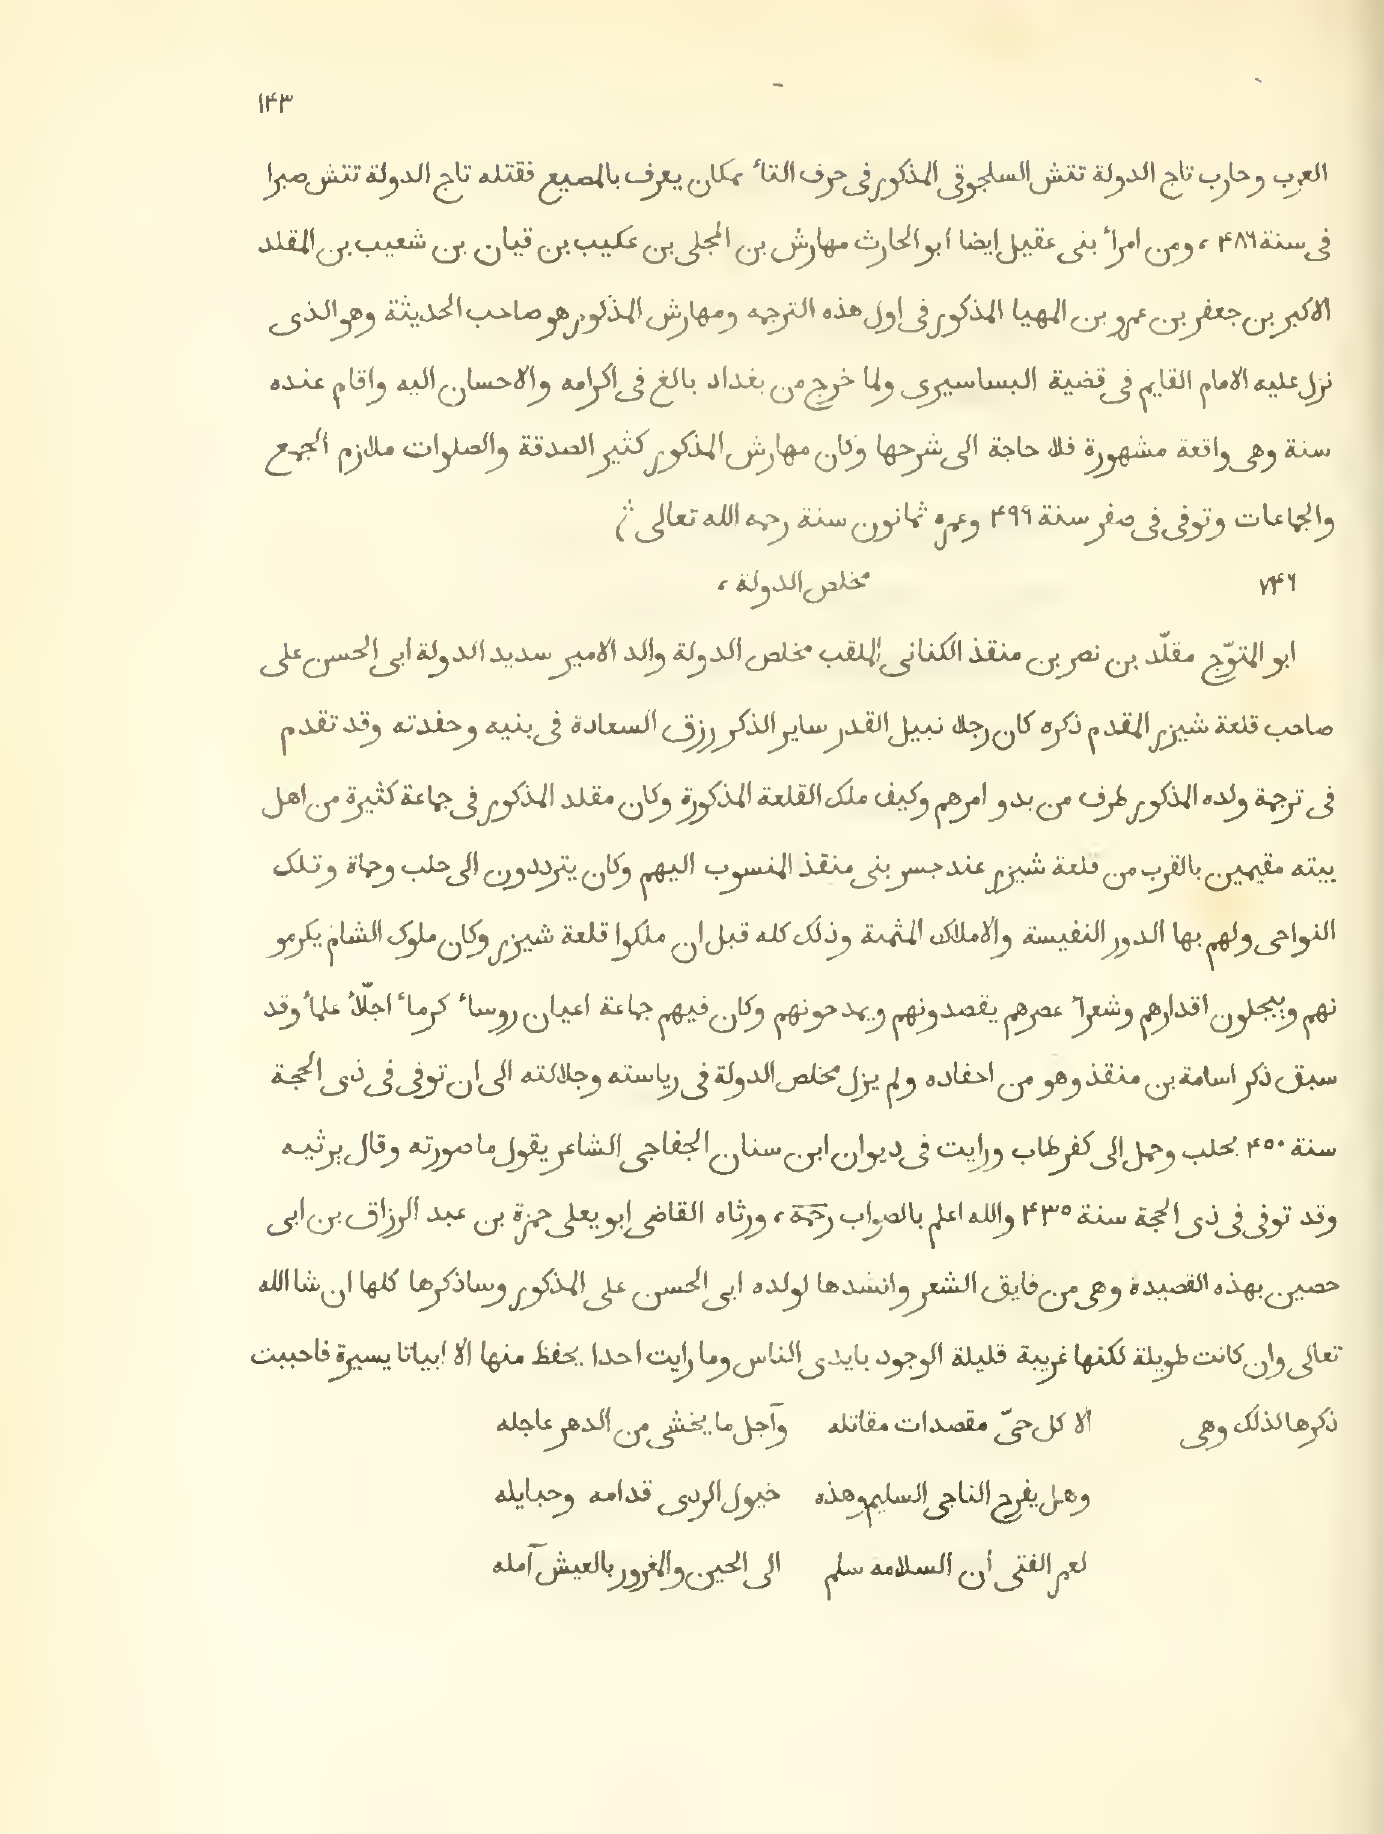 ١٤٣
العرب وحارب تاج الدولة تتش السلجوقى المذكور فى حرف التاء بمكان يعرف بالمصيع فقتله تاج الدولة تتش صبرا
فى سنة ٤٨٦ ، ومن امراء بنى عقيل ايضا ابو الحارث مهارش بن المجلى بن عكيب بن قيان بن شعيب بن المقلد
الاكبر بن جعفر بن عمرو بن المهيا المذكور فى اول هذه الترجمه ومهارش المذكور هو صاحب الحديثة وهو الذى
نزل عليه الامام القايم فى قضية البساسيرى ولما خرج من بغداد بالغ فى اكرامه والاحسان اليه واقام عنده
سنة وهى واقعة مشهورة فلا حاجة الى شرحها وكان مهارش المذكور كثير الصدقة والصلوات ملازم الجمع
والجماعات وتوفى فى صفر سنة ٤٩٩ وعمره ثمانون سنة رحمه الله تعالى
٧٤٦ مخلص الدولة ،
ابو المتوّج مقلّد بن نصر بن منقذ الكنانى الملقب مخلص الدولة والد الامير سديد الدولة ابى الحسن على
صاحب قلعة شيزر المقدم ذكره كان رجلا نبيل القدر ساير الذكر رزق السعادة فى بنيه وحفدته وقد تقدم
فى ترجمة ولده المذكور طرف من بدو امرهم وكيف ملك القلعة المذكورة وكان مقلد المذكور فى جماعة كثيرة من اهل
بيته مقيمين بالقرب من قلعة شيزر عند جسر بنى منقذ المنسوب اليهم وكان يترددون الى حلب وحماة وتلك
النواحى ولهم بها الدور النفيسة والاملاك المثمنة وذلك كله قبل ان ملكوا قلعة شيزر وكان ملوك الشام يكرمو
نهم ويبجلون اقدارهم وشعرآ عصرهم يقصدونهم ويمدحونهم وكان فيهم جماعة اعيان روساء كرماء اجلّاء علماء وقد
سبق ذكر اسامة بن منقذ وهو من احفاده ولم يزل مخلص الدولة فى رياسته وجلالته الى ان توفى فى ذى الحجة
سنة ٤٥٠ بحلب وحمل الى كفرطاب ورايت فى ديوان ابن سنان الجفاجى الشاعر يقول ما صورته وقال يرثيه
وقد توفى فى ذى الحجة سنة ٤٣٥ والله اعلم بالصواب رحمه ، ورثاه القاضى ابو يعلى حمزة بن عبد الرزاق بن ابى
حصين بهذه القصيدة وهى من فايق الشعر وانشدها لولده ابى الحسن على المذكور وساذكرها كلها ان شا الله
تعالى وان كانت طويلة لكنها غريبة قليلة الوجود بايدى الناس وما رايت احدا يحفظ منها الا ابياتا يسيرة فاحببت
ذكرها لذلك وهى الا كل حىّ مقصدات مقاتله وآجل ما يخشى من الدهر عاجله
وهل يفرح الناجى السليم وهذه خيول الردى قدامه وحبايله
لعمر الفتى أن السلامه سلم الى الحين والمغرور بالعيش آمله